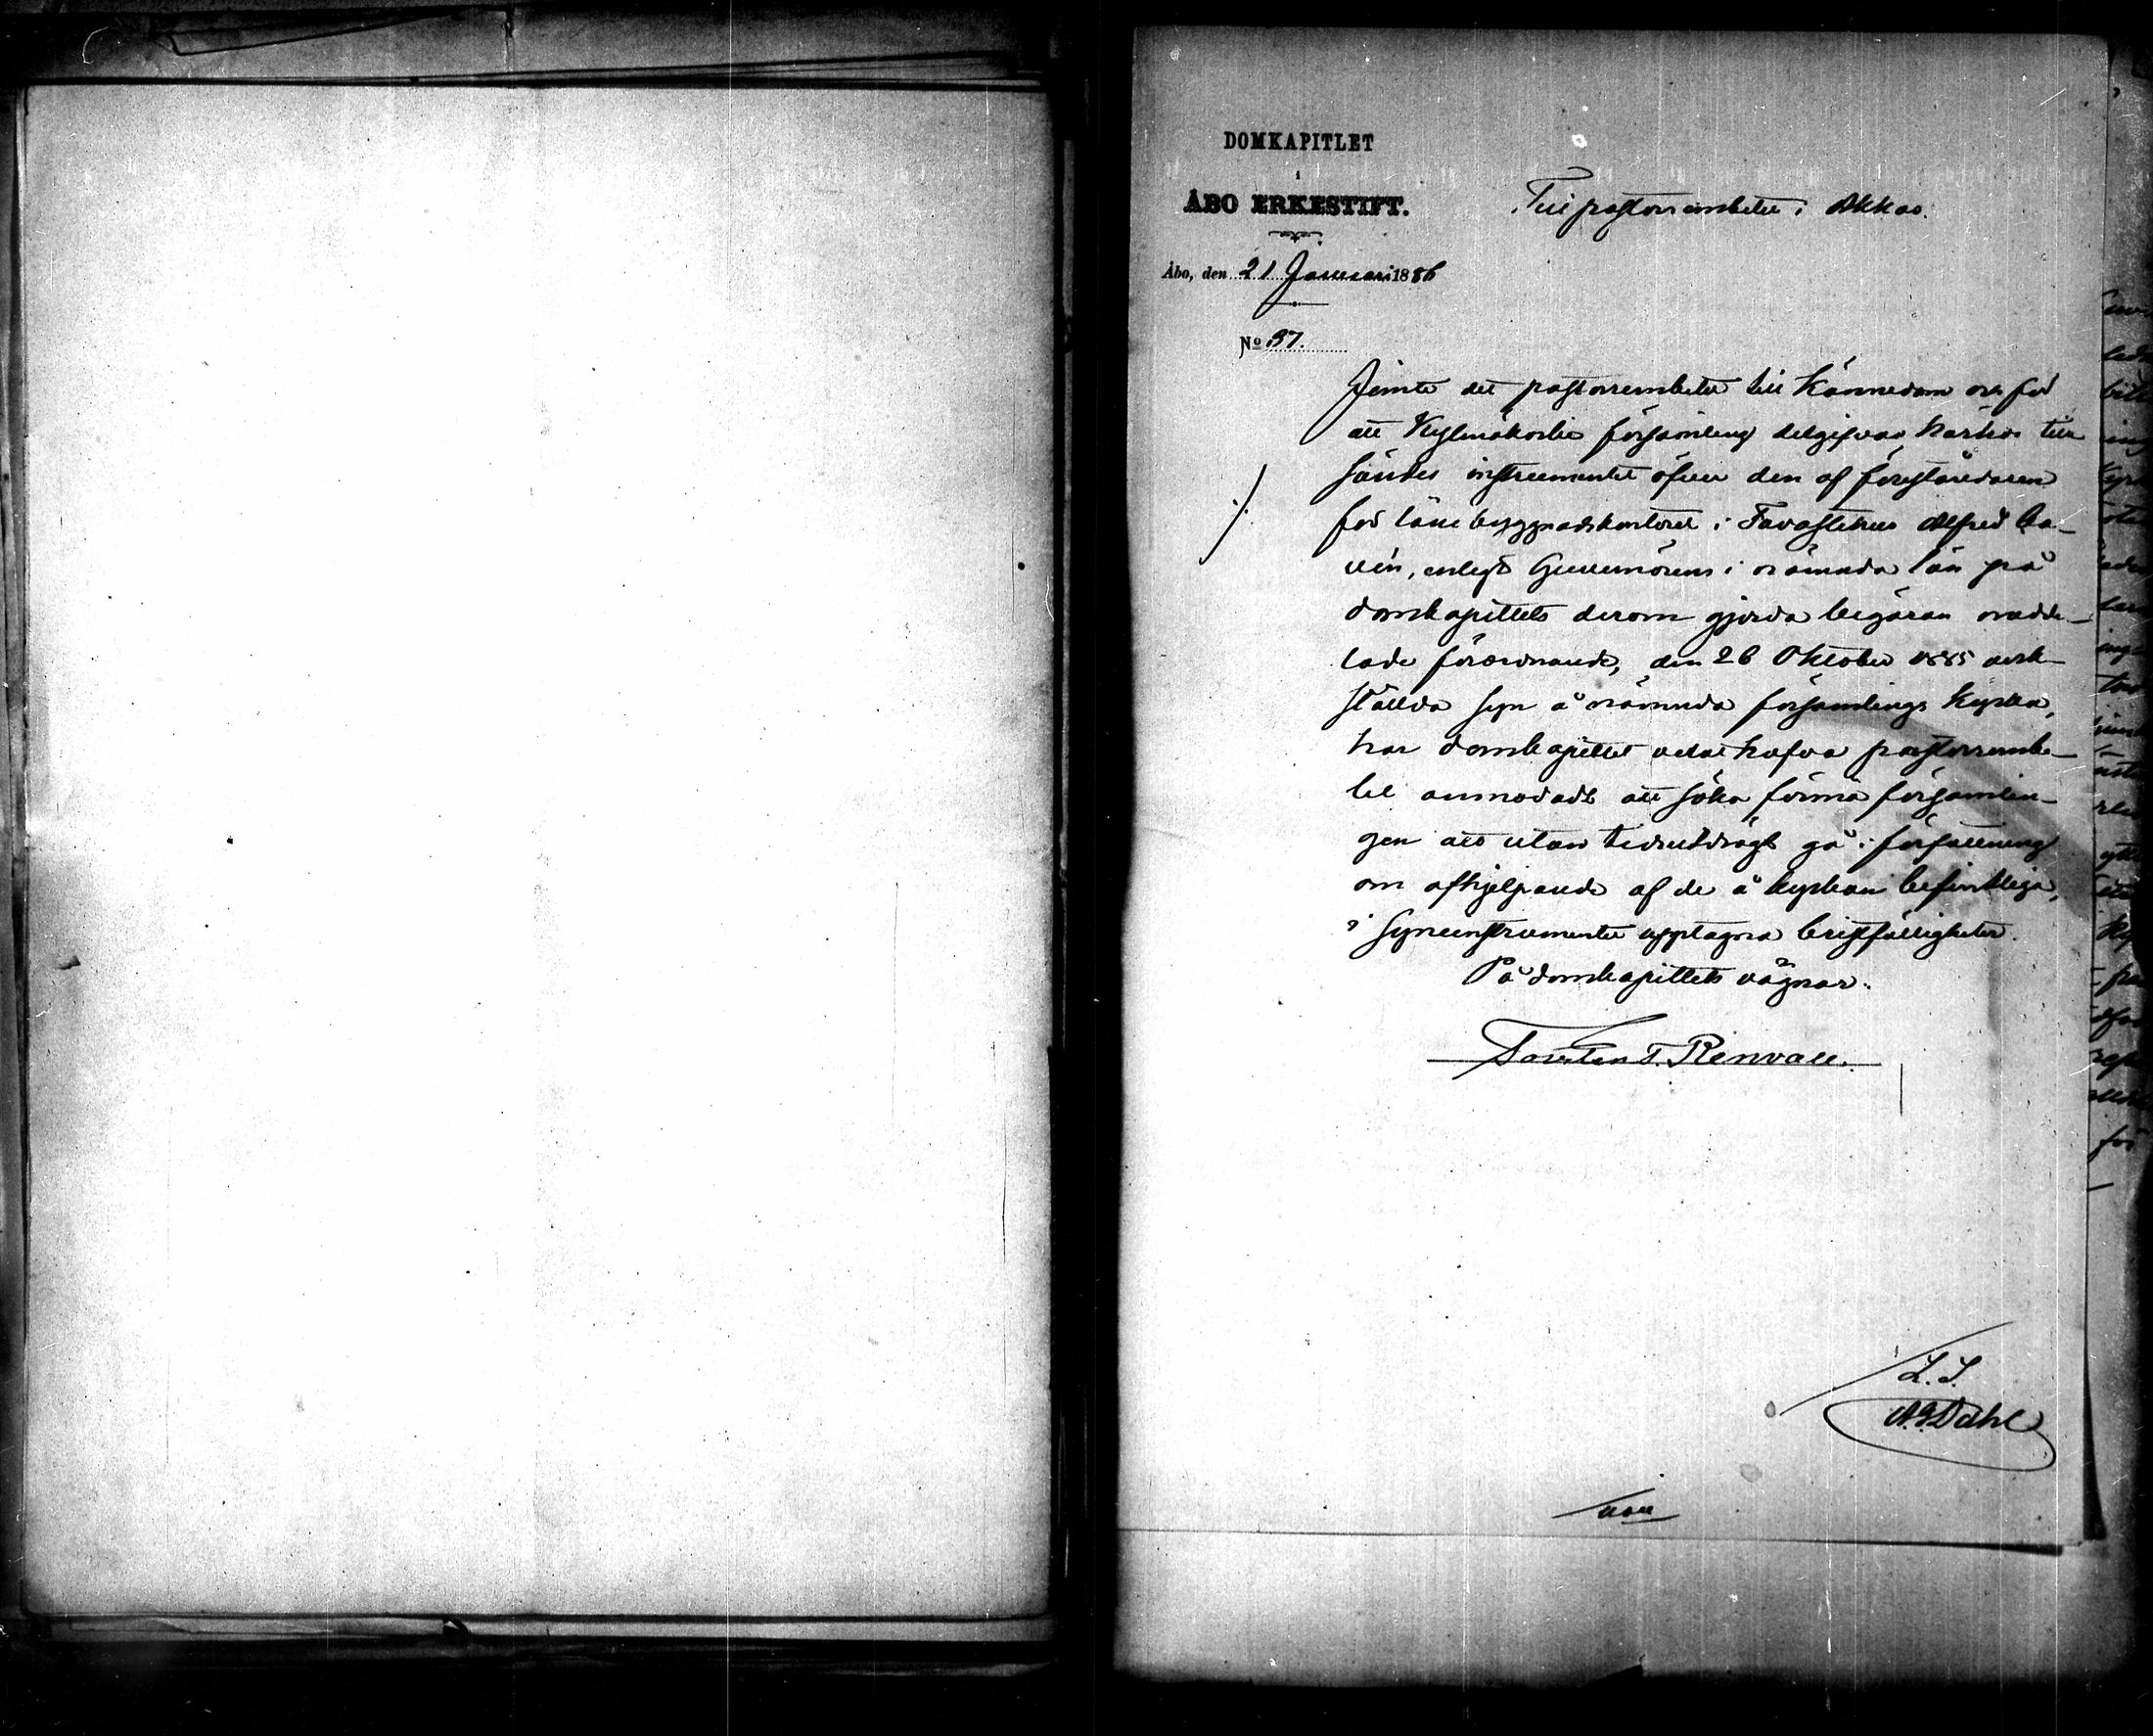 DOMKAPITLET
i
ÅBO ERKESTIFT.
Till pastorsembetet i Akkas.
Åbo, den 21 Januari 1886
No 37.
Jemte det pastorsembetet till kännedom och för
att Kylmäkoski församling delgifvas härhos till
sändes instrumentet öfver den af föreståndaren
för läns byggnadskontoret i Tavastehus Alfred Ca-
vén, enligt Guvernörens i nämnda län på
domkapitlets derom gjorda begäran medde-
lade förordnande, den 26 Oktober 1885 verk-
stälda syn å nämnda församlings kyrka,
har domkapitlet velat hafva pastorsembe-
tet anmodadt att söka förmå församlin-
gen att utan tidsutdrägt gå i författning
om afhjelpande af de å kyrkan befintliga,
i syneinstrumentet upptagna bristfälligheter.
På domkapitlets vägnar:
Torsten T. Renvall.
A. G. Dahl